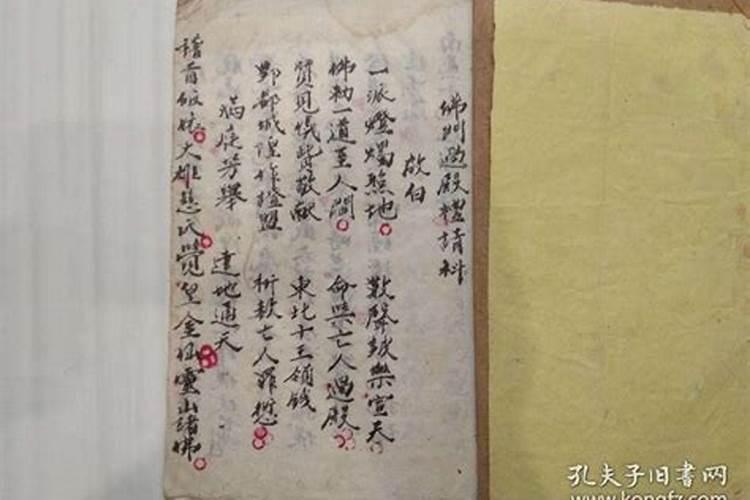 佛門過殿禮請科
啟白
一派燈燭照地 數聲鼓樂宣天
佛勅一道至人間 命與亡人過殿
賫見儀貲敬献 東北十王領錢
酆都城隍作證盟 赦亡人罪愆
满庭芳舉 達地通天
稽首皈依大雄慈氏覺皇金仙靈山諸佛
孔夫子旧书网
www.kongfz.com